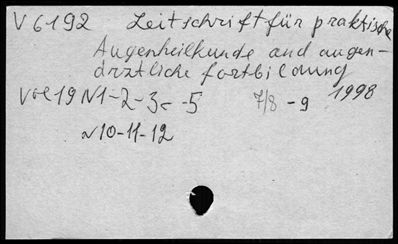 V 6192 Zeitschrift für praktische
Augenheilkunde and augen-
ärztliche fortbildung
Vol 19 N1-2-3- -5 7/8 -9 1998
N10-11-12